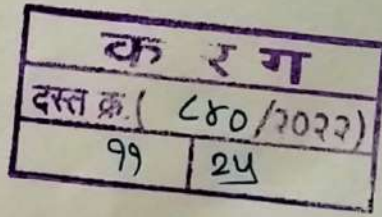 क र ग
दस्त क्र. ( ८४०/२०२२)
११ २५